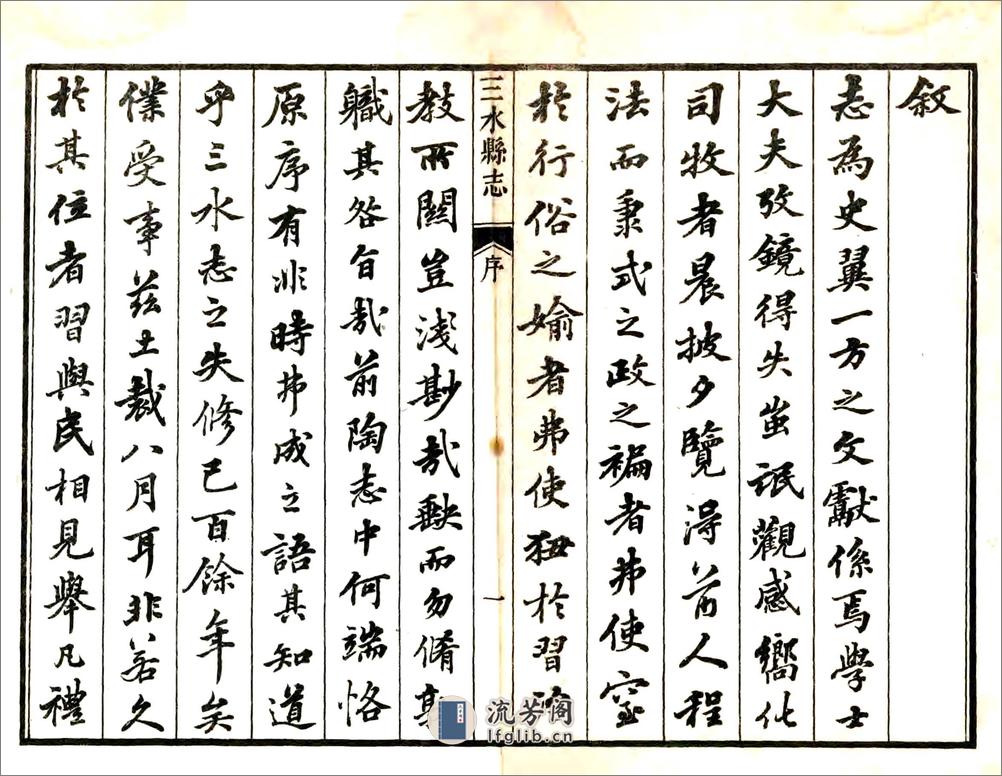 敘
志為史翼一方之文獻係焉學士
大夫攷鏡得失蚩氓觀感嚮化
司牧者晨披夕覽得前人程
法而秉式之政之褊者弗使窒
於行俗之媮者弗使狃於習
三水縣志
序
一
教所關豈淺尠哉缺而勿脩
職其咎旨哉前陶志中何端恪
原序有非時弗成之語其知道
乎三水志之失修已百餘年矣
僕受事茲土裁八月耳非若久
於其位者習與民相見舉凡禮
流芳阁
lfglib.cn